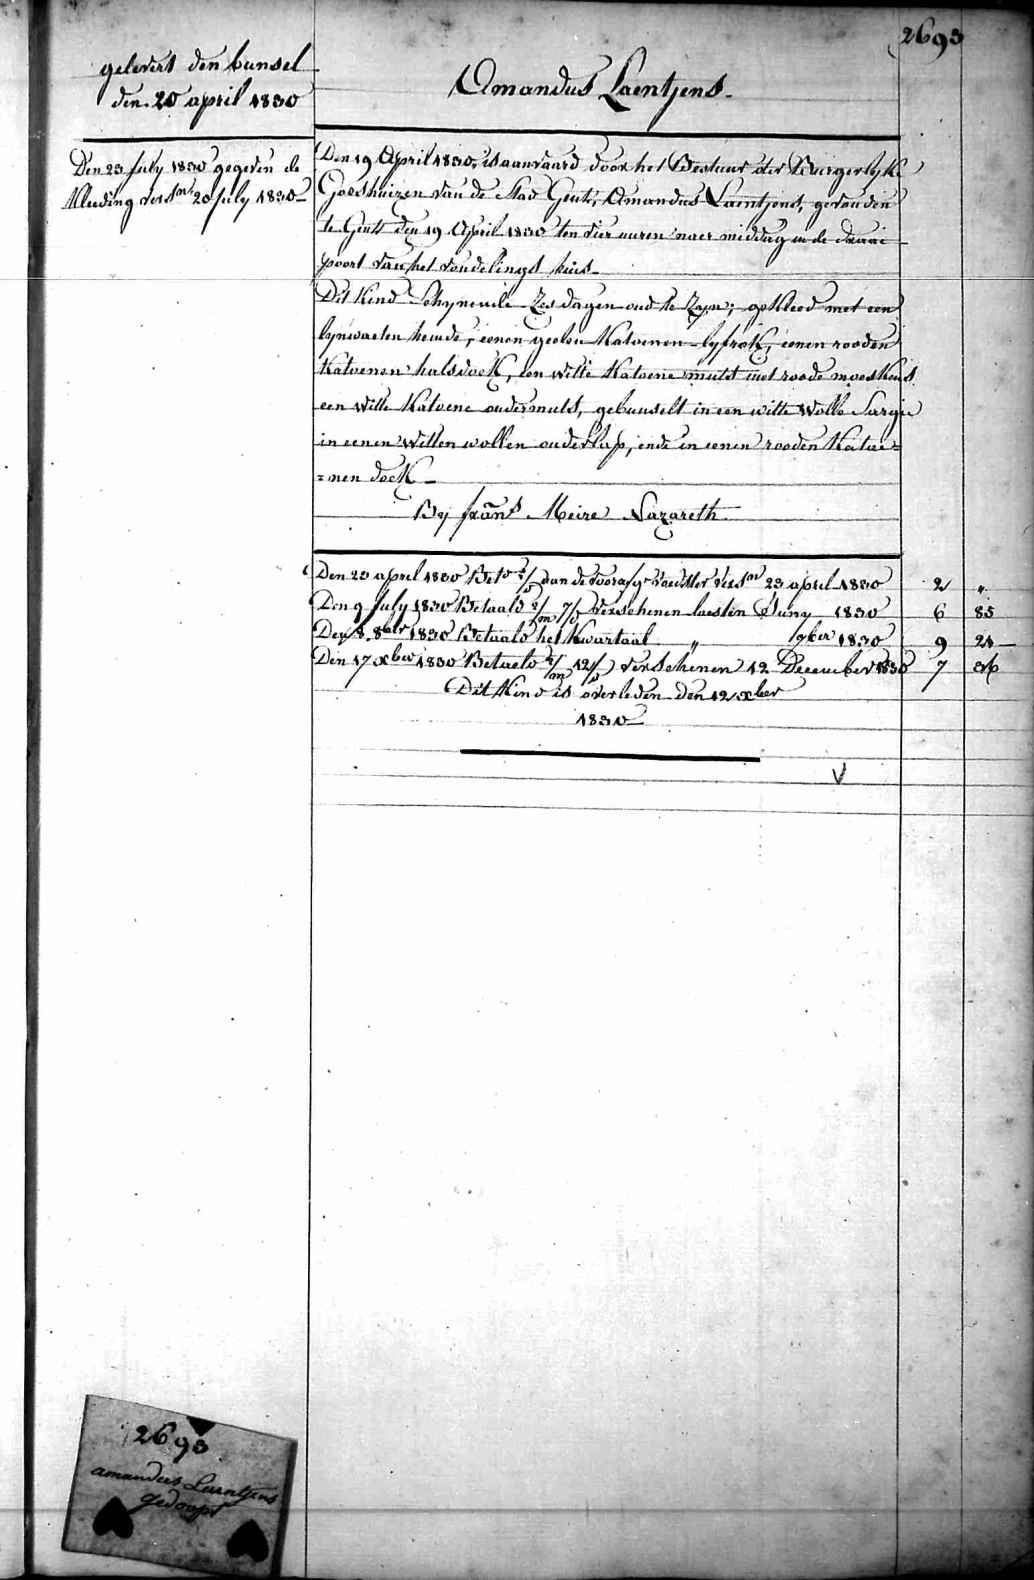 2693
gelevert den bunsel
den 20 april 1830
Amandus Laentjens.
Den 23 July 1830 gegeven de
kleeding vers.n 20 July 1830
Den 19 April 1830, is aanvaard door het Bestuur der Burgerlyke
Godshuizen van de Stad Gent, Amandus Laentjens, gevonden
te Gent den 19 April 1830 ten vier uuren naer middag in de draai
poort van het vondelings huis
Dit Kind Schynende Zes dagen oud te Zyn; gekleed met een
lynwaeten hemde, eenen geelen Katoenen lyfrok, eenen rooden
Katoenen halsdoek, een witte Katoene muts met roode moeskens
een witte Katoene ondermuts, gebunselt in een witte Wolle Sargie
in eenen Witten wollen onderlap, ende in eenen rooden Katoe=
=nen doek
By frans Meire Nazareth
Den 23 april 1830 Bet.d aan de voedster vers.n 23 april 1830 2 "
Den 9 July 1830 Betaald verschenen laesten Juny 1830 6 85
Den 8 8ber 1830 Betaald het Kwartaal " 9ber 1830 9 24
Den 17 xber 1830 Betaeld verschenen 12 December 1830 7 86
Dit Kind is overleden den 12 xber
1830
2693
amandus Laentjens
gedoopt